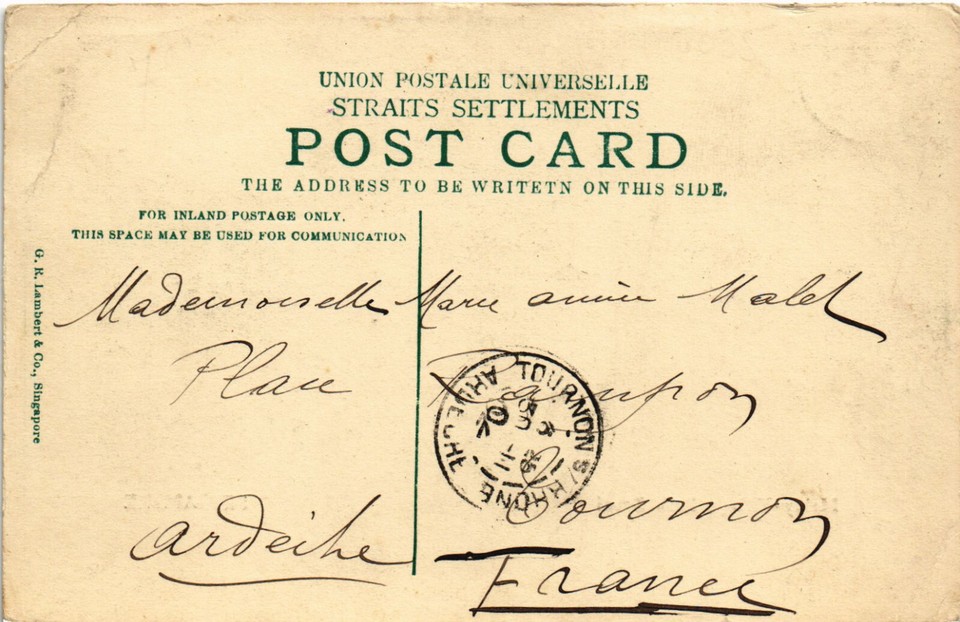 UNION POSTALE UNIVERSELLE
STRAITS SETTLEMENTS
POST CARD
THE ADDRESS TO BE WRITETN ON THIS SIDE.
FOR INLAND POSTAGE ONLY.
THIS SPACE MAY BE USED FOR COMMUNICATION
G. R. Lambert & Co., Singapore
Mademoiselle Marie Malet
Place
TOURNON S/ RHÔNE
ARDECHE
Tournon
Ardèche
France